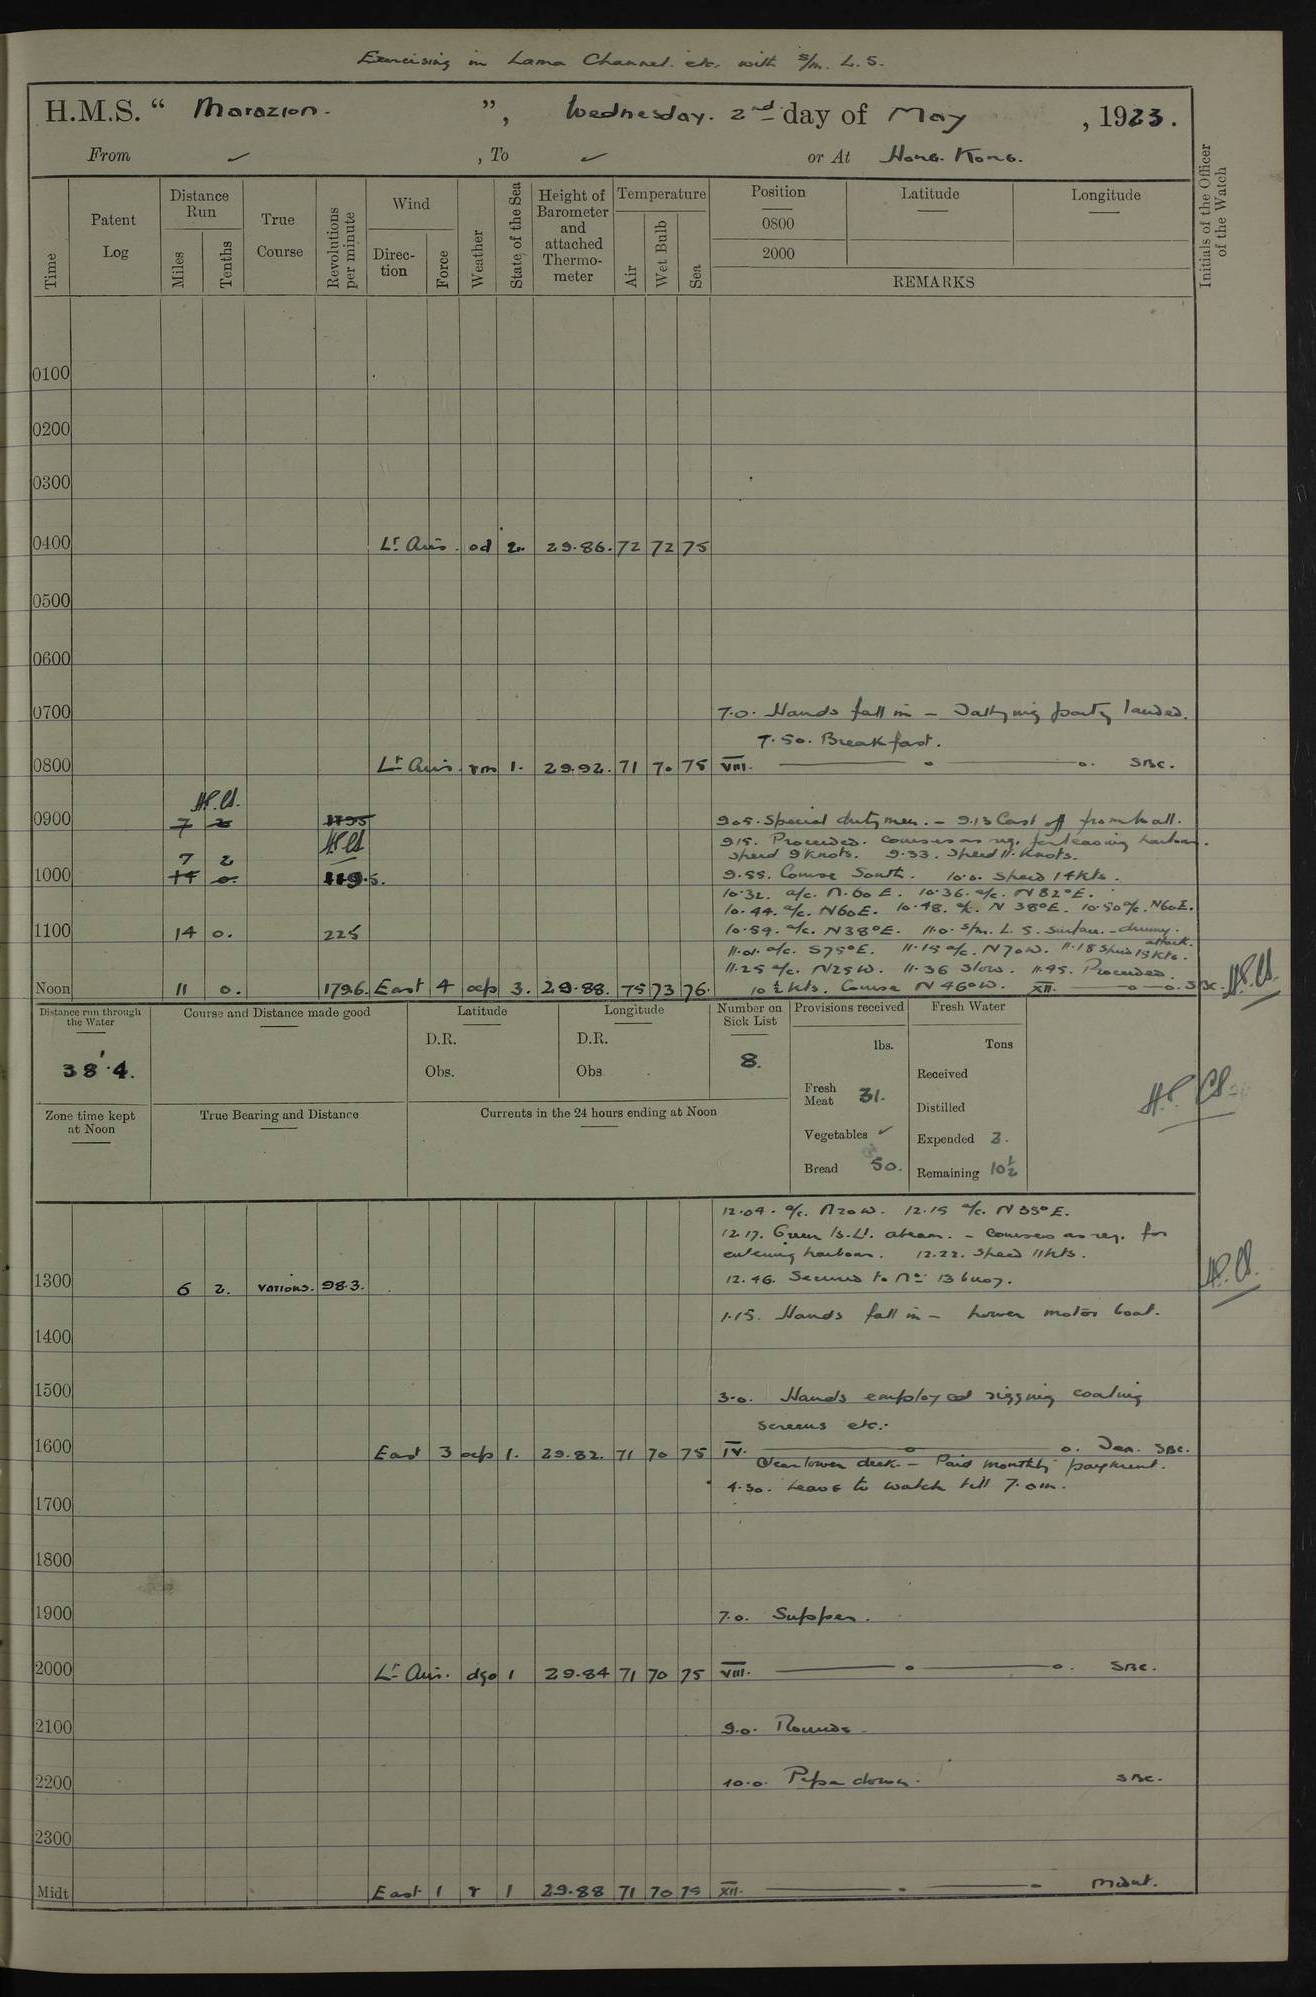 Exercising in Lama Channel. etc. with s/m. L. 5.
H.M.S. “ Marazion. ”, Wednesday. 2nd day of May , 1923.
From ✓ , To ✓ or At Hong. Kong.
Time
Patent Log
Distance Run
Miles
Tenths
True Course
Revolutions per minute
Wind
Direction
Force
Weather
State of the Sea
Height of Barometer and attached Thermometer
Temperature
Air
Wet Bulb
Sea
Position
0800
2000
Latitude
Longitude
REMARKS
Initials of the Officer of the Watch
0100
0200
0300
0400 Lt Airs. od 2. 29.86. 72 72 75
0500
0600
0700 7.0. Hands fall in – party landed.
7.50. Breakfast.
0800 Lt Airs. rm 1. 29.92. 71 70 75 VIII. SBC.
0900 7 2 905. Special dutymen. – 9.13 Cast off from wall.
915. Proceeded. courses as req. for leaving harbour.
7 2 speed 9 knots. 9.33. speed 11. knots.
1000 14 0. 119.5. 9.55. Course South. 10.0. speed 14 kts.
10.32. a/c. N.60 E. 10.36. a/c. N 82° E.
10.44. a/c. N60E. 10.48. a/c. N 38° E. 10.50 a/c. N60E.
1100 14 0. 225 10.59. a/c. N38°E. 11.0. s/m. L. 5. surface. – dummy attack.
11.01. a/c. S75°E. 11.15 a/c. N70W. 11.18 speed 15 kts.
11.25 a/c. N25W. 11.36 slow. 11.45. Proceeded.
Noon 11 0. 179.6. East 4 ocp 3. 29.88. 75 73 76. 10 ½ kts. Course N 46° W. XII. SBC.
Distance run through the Water
38'.4.
Zone time kept at Noon
Course and Distance made good
True Bearing and Distance
Latitude
D.R.
Obs.
Longitude
D.R.
Obs
Currents in the 24 hours ending at Noon
Number on Sick List
8.
Provisions received
lbs.
Fresh Meat 31.
Vegetables ✓
Bread 50.
Fresh Water
Tons
Received
Distilled
Expended 2.
Remaining 10½
12.04. a/c. N20W. 12.15 a/c. N 35° E.
12.17. Green Is. Lt. abeam. – courses as req. for
entering harbour. 12.22. speed 11 kts.
1300 6 2. various. 98.3. 12.46. Secured to No 13 buoy.
1.15. Hands fall in – lower motor boat.
1400
1500 3.0. Hands employed rigging coaling
screens etc.
1600 East 3 ocp 1. 29.82. 71 70 75 IV. SBC.
Clear lower deck. – Paid monthly payment.
4.30. Leave to watch till 7.0 am.
1700
1800
1900 7.0. Supper.
2000 Lt Airs. dgo 1 29.84 71 70 75 VIII. SBC.
2100 9.0. Rounds.
2200 10.0. Pipe down. SBC.
2300
Midt East 1 r 1 29.88 71 70 75 XII. Midnt.